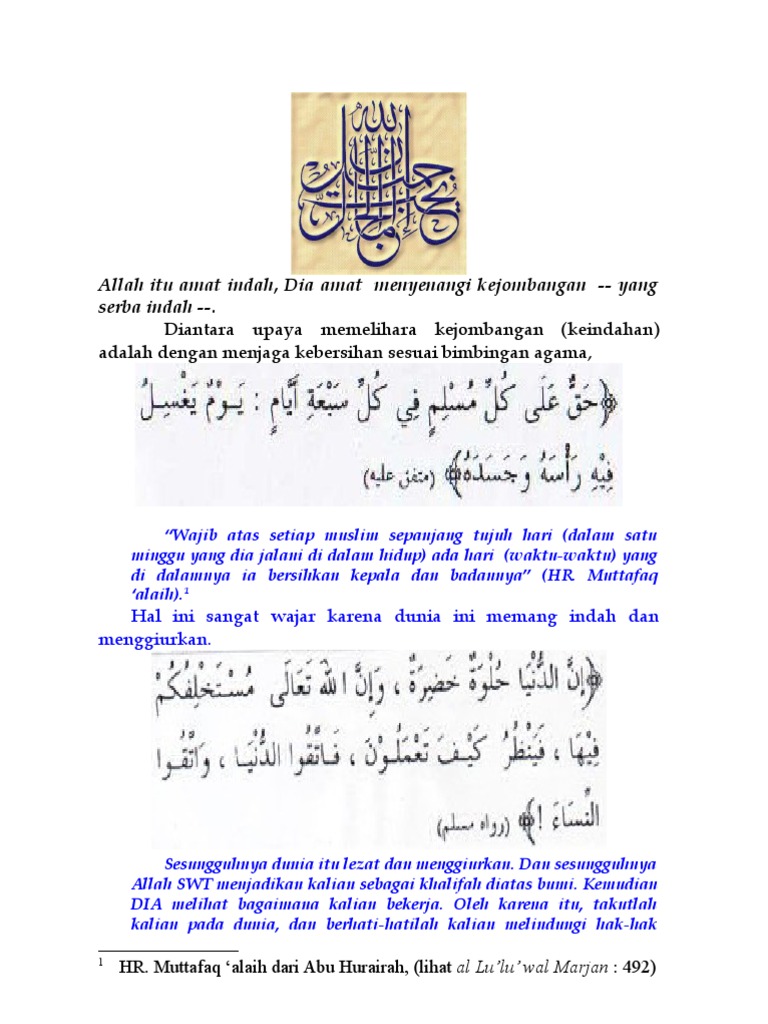 إن الله جميل يحب الجمال
Allah itu amat indah, Dia amat menyenangi kejombangan -- yang
serba indah --.
Diantara upaya memelihara kejombangan (keindahan)
adalah dengan menjaga kebersihan sesuai bimbingan agama,
﴿حَقٌّ عَلَى كُلِّ مُسْلِمٍ فِي كُلِّ سَبْعَةِ أَيَّامٍ : يَوْمٌ يَغْسِلُ
فِيْهِ رَأْسَهُ وَجَسَدَهُ﴾ (متفق عليه)
“Wajib atas setiap muslim sepanjang tujuh hari (dalam satu
minggu yang dia jalani di dalam hidup) ada hari (waktu-waktu) yang
di dalamnya ia bersihkan kepala dan badannya” (HR. Muttafaq
‘alaih).¹
Hal ini sangat wajar karena dunia ini memang indah dan
menggiurkan.
﴿إِنَّ الدُّنْيَا حُلْوَةٌ خَضِرَةٌ ، وَإِنَّ اللهَ تَعَالَى مُسْتَخْلِفُكُمْ
فِيْهَا ، فَيَنْظُرُ كَيْفَ تَعْمَلُوْنَ ، فَاتَّقُوا الدُّنْيَا ، وَاتَّقُوا
النِّسَاءَ !﴾ (رواه مسلم)
Sesungguhnya dunia itu lezat dan menggiurkan. Dan sesungguhnya
Allah SWT menjadikan kalian sebagai khalifah diatas bumi. Kemudian
DIA melihat bagaimana kalian bekerja. Oleh karena itu, takutlah
kalian pada dunia, dan berhati-hatilah kalian melindungi hak-hak
¹ HR. Muttafaq ‘alaih dari Abu Hurairah, (lihat al Lu’lu’ wal Marjan : 492)